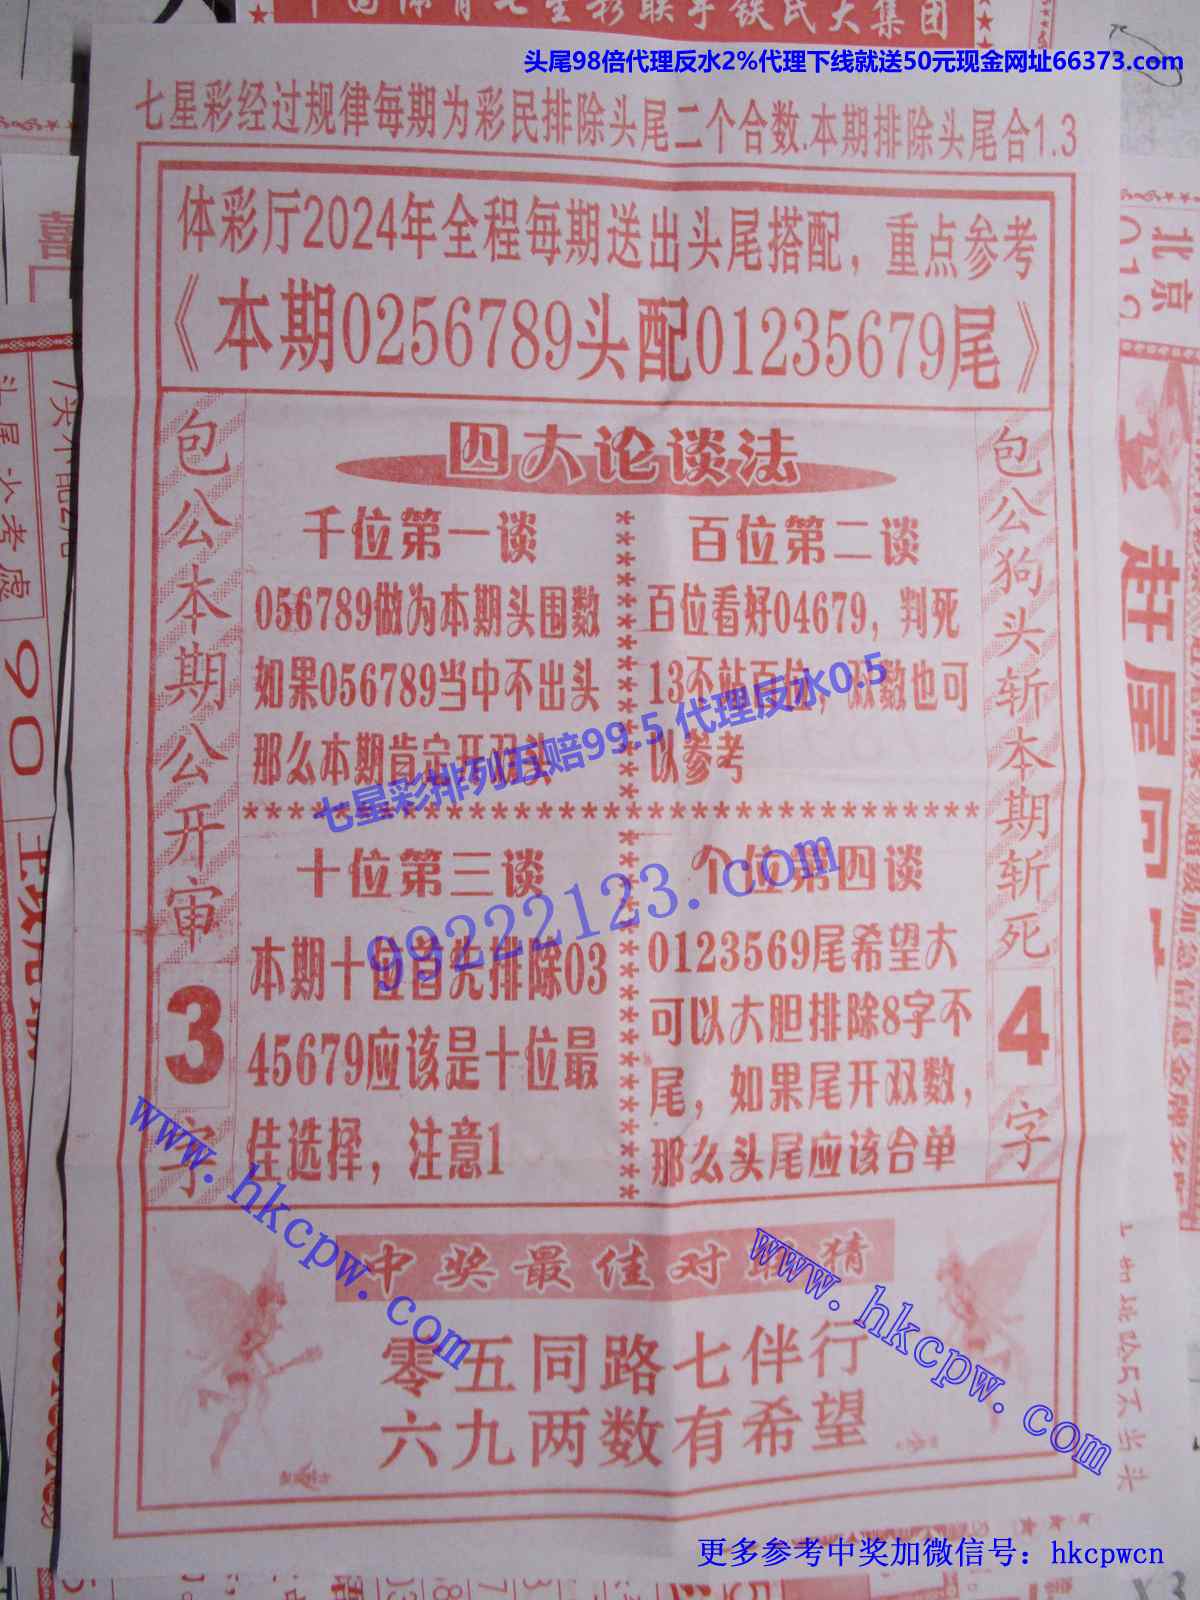 中国体育七星彩联手铁民大集团
头尾98倍代理反水2%代理下线就送50元现金网址66373.com
七星彩经过规律每期为彩民排除头尾二个合数.本期排除头尾合1.3
体彩厅2024年全程每期送出头尾搭配，重点参考
《本期0256789头配01235679尾》
包公本期公开审
3
字
四大论谈法
千位第一谈
056789做为本期头围数
如果056789当中不出头
那么本期肯定开双头
百位第二谈
百位看好04679，判死
13不站百位，双数也可
以参考
七星彩排列五赔99.5 代理反水0.5
99222123.com
十位第三谈
本期十位首先排除03
45679应该是十位最
佳选择，注意1
个位第四谈
0123569尾希望大
可以大胆排除8字不
尾，如果尾开双数，
那么头尾应该合单
包公狗头斩本期斩死
4
字
www.hkcpw.com
www.hkcpw.com
中奖最佳对联猜
零五同路七伴行
六九两数有希望
更多参考中奖加微信号：hkcpwcn
喜
头尾少考虑
90
北京
赶尾向